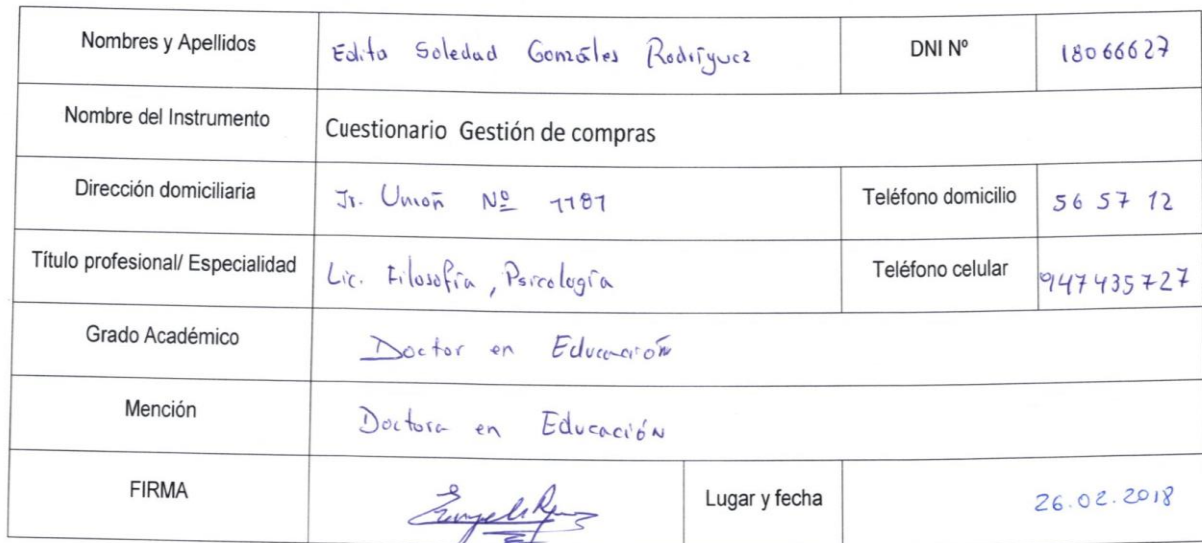 Nombres y Apellidos Edita Soledad Gonzáles Rodríguez DNI Nº 18066627
Nombre del Instrumento Cuestionario Gestión de compras
Dirección domiciliaria Jr. Unión Nº 1181 Teléfono domicilio 56 57 12
Título profesional/ Especialidad Lic. Filosofía, Psicología Teléfono celular 947435727
Grado Académico Doctor en Educación
Mención Doctora en Educación
FIRMA Lugar y fecha 26.02.2018